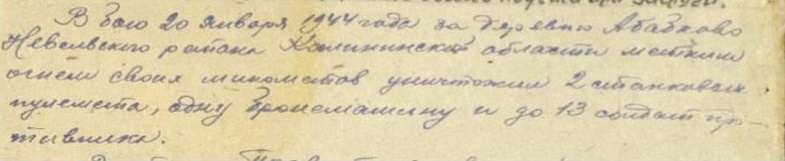 В бою 20 января 1944 года за деревню Абабково
Невельского района Калининской области метким
огнем своих минометов уничтожил 2 станковых
пулемета, одну бронемашину и до 13 солдат про-
тивника.